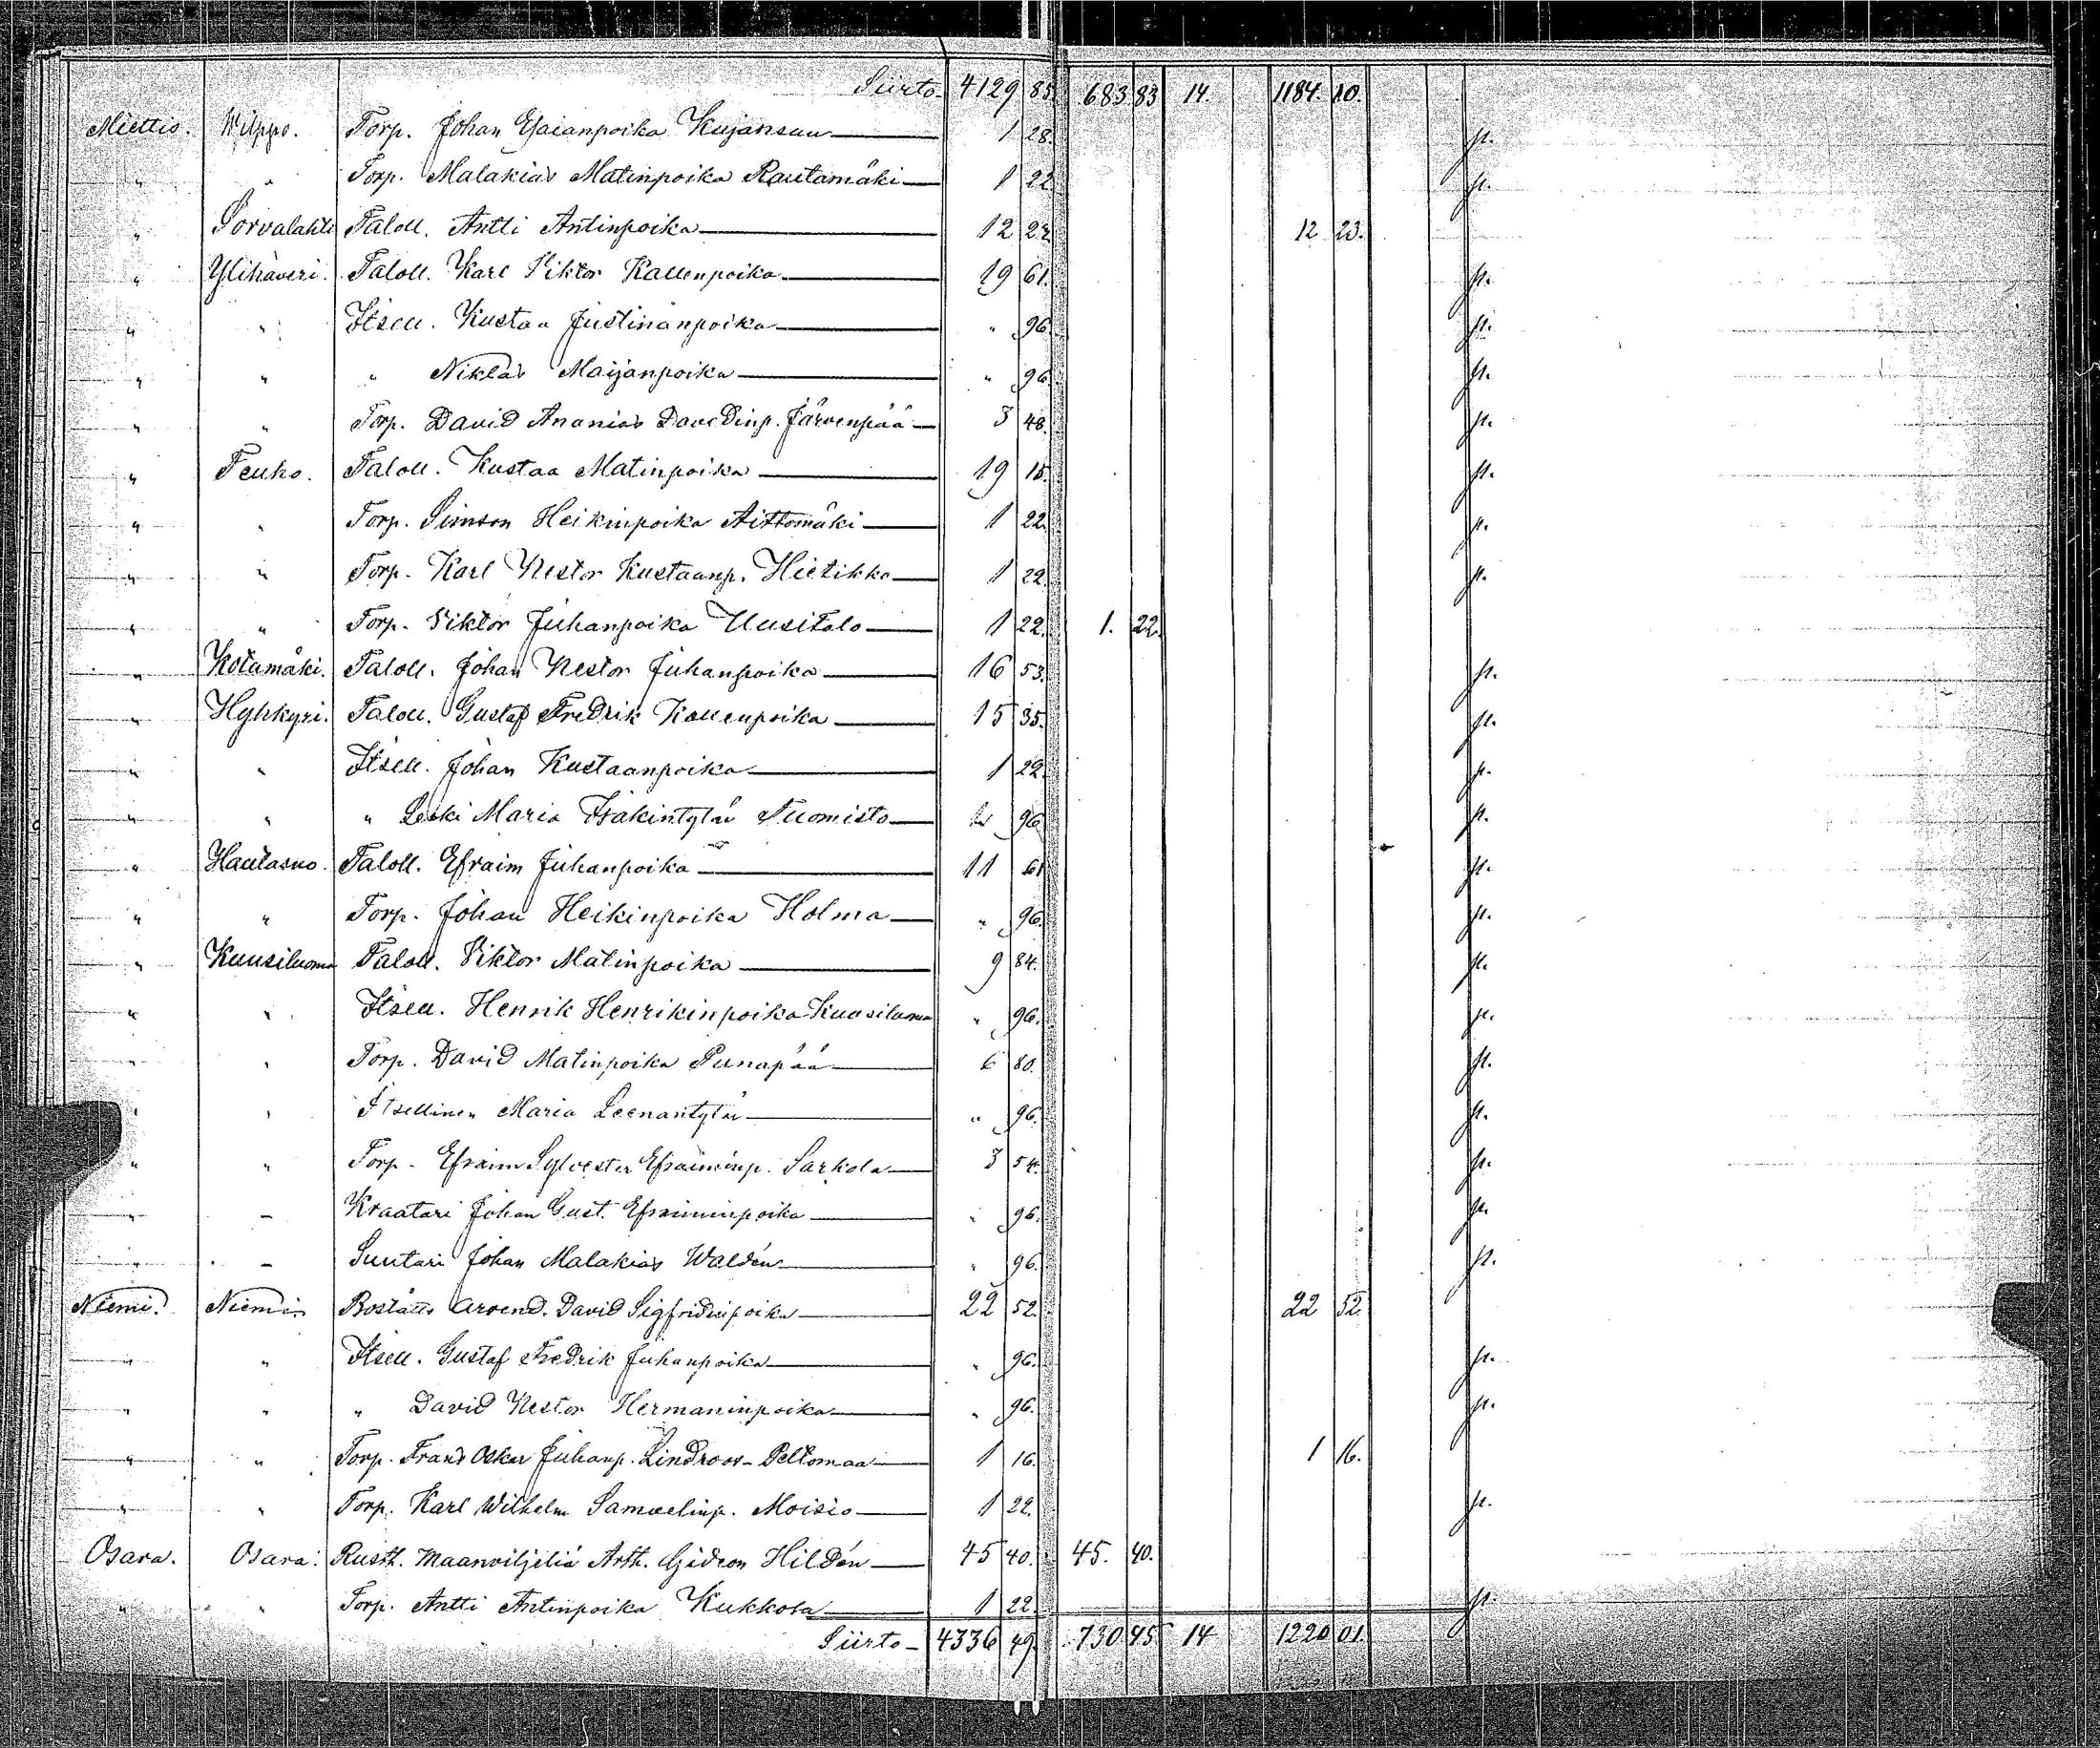 Siirto 4129 85. 683 83 14. 1184. 10.
Miettis. Wilppo. Torp. Johan Esaianpoika Kujansuu 1 28. p.
" " Torp. Malakias Matinpoika Rautamäki 1 22. p.
" Sorvalahti Taloll. Antti Antinpoika 12 23. 12 23.
" Ylihäveri. Taloll. Karl Viktor Kallenpoika 19 61. p.
" " Itsell. Kustaa Justinanpoika " 96. p.
" " " Niklas Maijanpoika " 96. p.
" " Torp. David Ananias Davidinp. Järvenpää 3 48. p.
" Teuho. Taloll. Kustaa Matinpoika 19 15. p.
" " Torp. Simson Heikinpoika Aittomäki 1 22. p.
" " Torp. Karl Nestor Kustaanp. Hietikko 1 22. p.
" " Torp. Viktor Juhanpoika Uusitalo 1 22. 1. 22.
" Kotamäki. Taloll. Johan Nestor Juhanpoika 16 53. p.
" Hyhkyri. Taloll. Gustaf Fredrik Kallenpoika 15 35. p.
" " Itsell. Johan Kustaanpoika 1 22. p.
" " " Leski Maria Isakintytär Tuomisto " 96. p.
" Hautasuo. Taloll. Efraim Juhanpoika 11 61. p.
" " Torp. Johan Heikinpoika Holma " 96. p.
" Kuusiluoma Taloll. Viktor Matinpoika 9 84. p.
" " Itsell. Henrik Henrikinpoika Kuusiluoma " 96. p.
" " Torp. David Matinpoika Punapää 6 80. p.
" " Itsellinen Maria Leenantytär " 96. p.
" " Torp. Efraim Sylvester Efraiminp. Sarkola 3 54. p.
" " Kraatari Johan Gust. Efraiminpoika " 96. p.
" " Suutari Johan Malakias Waldén " 96. p.
Niemi. Niemi Boställs Arvend. David Sigfridinpoika 22 52. 22 52.
" " Itsell. Gustaf Fredrik Juhanpoika " 96. p.
" " " David Nestor Hermaninpoika " 96. p.
" " Torp. Frans Oskar Juhanp. Lindroos-Peltomaa 1 16. 1 16.
" " Torp. Karl Wilhelm Samuelinp. Moisio 1 22. p.
Osara. Osara. Rusth. Maanviljeliä Arth. Gideon Hildén 45 40. 45. 40.
" " Torp. Antti Antinpoika Kukkola 1 22. p.
Siirto 4336 49. 730 45 14 1220 01.